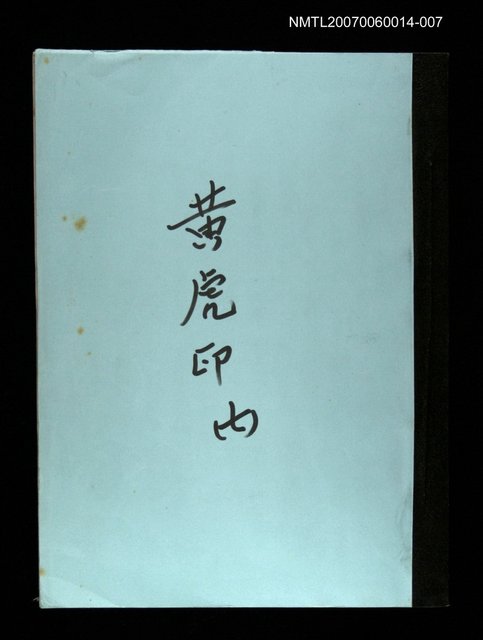 NMTL20070060014-007
黃虎印